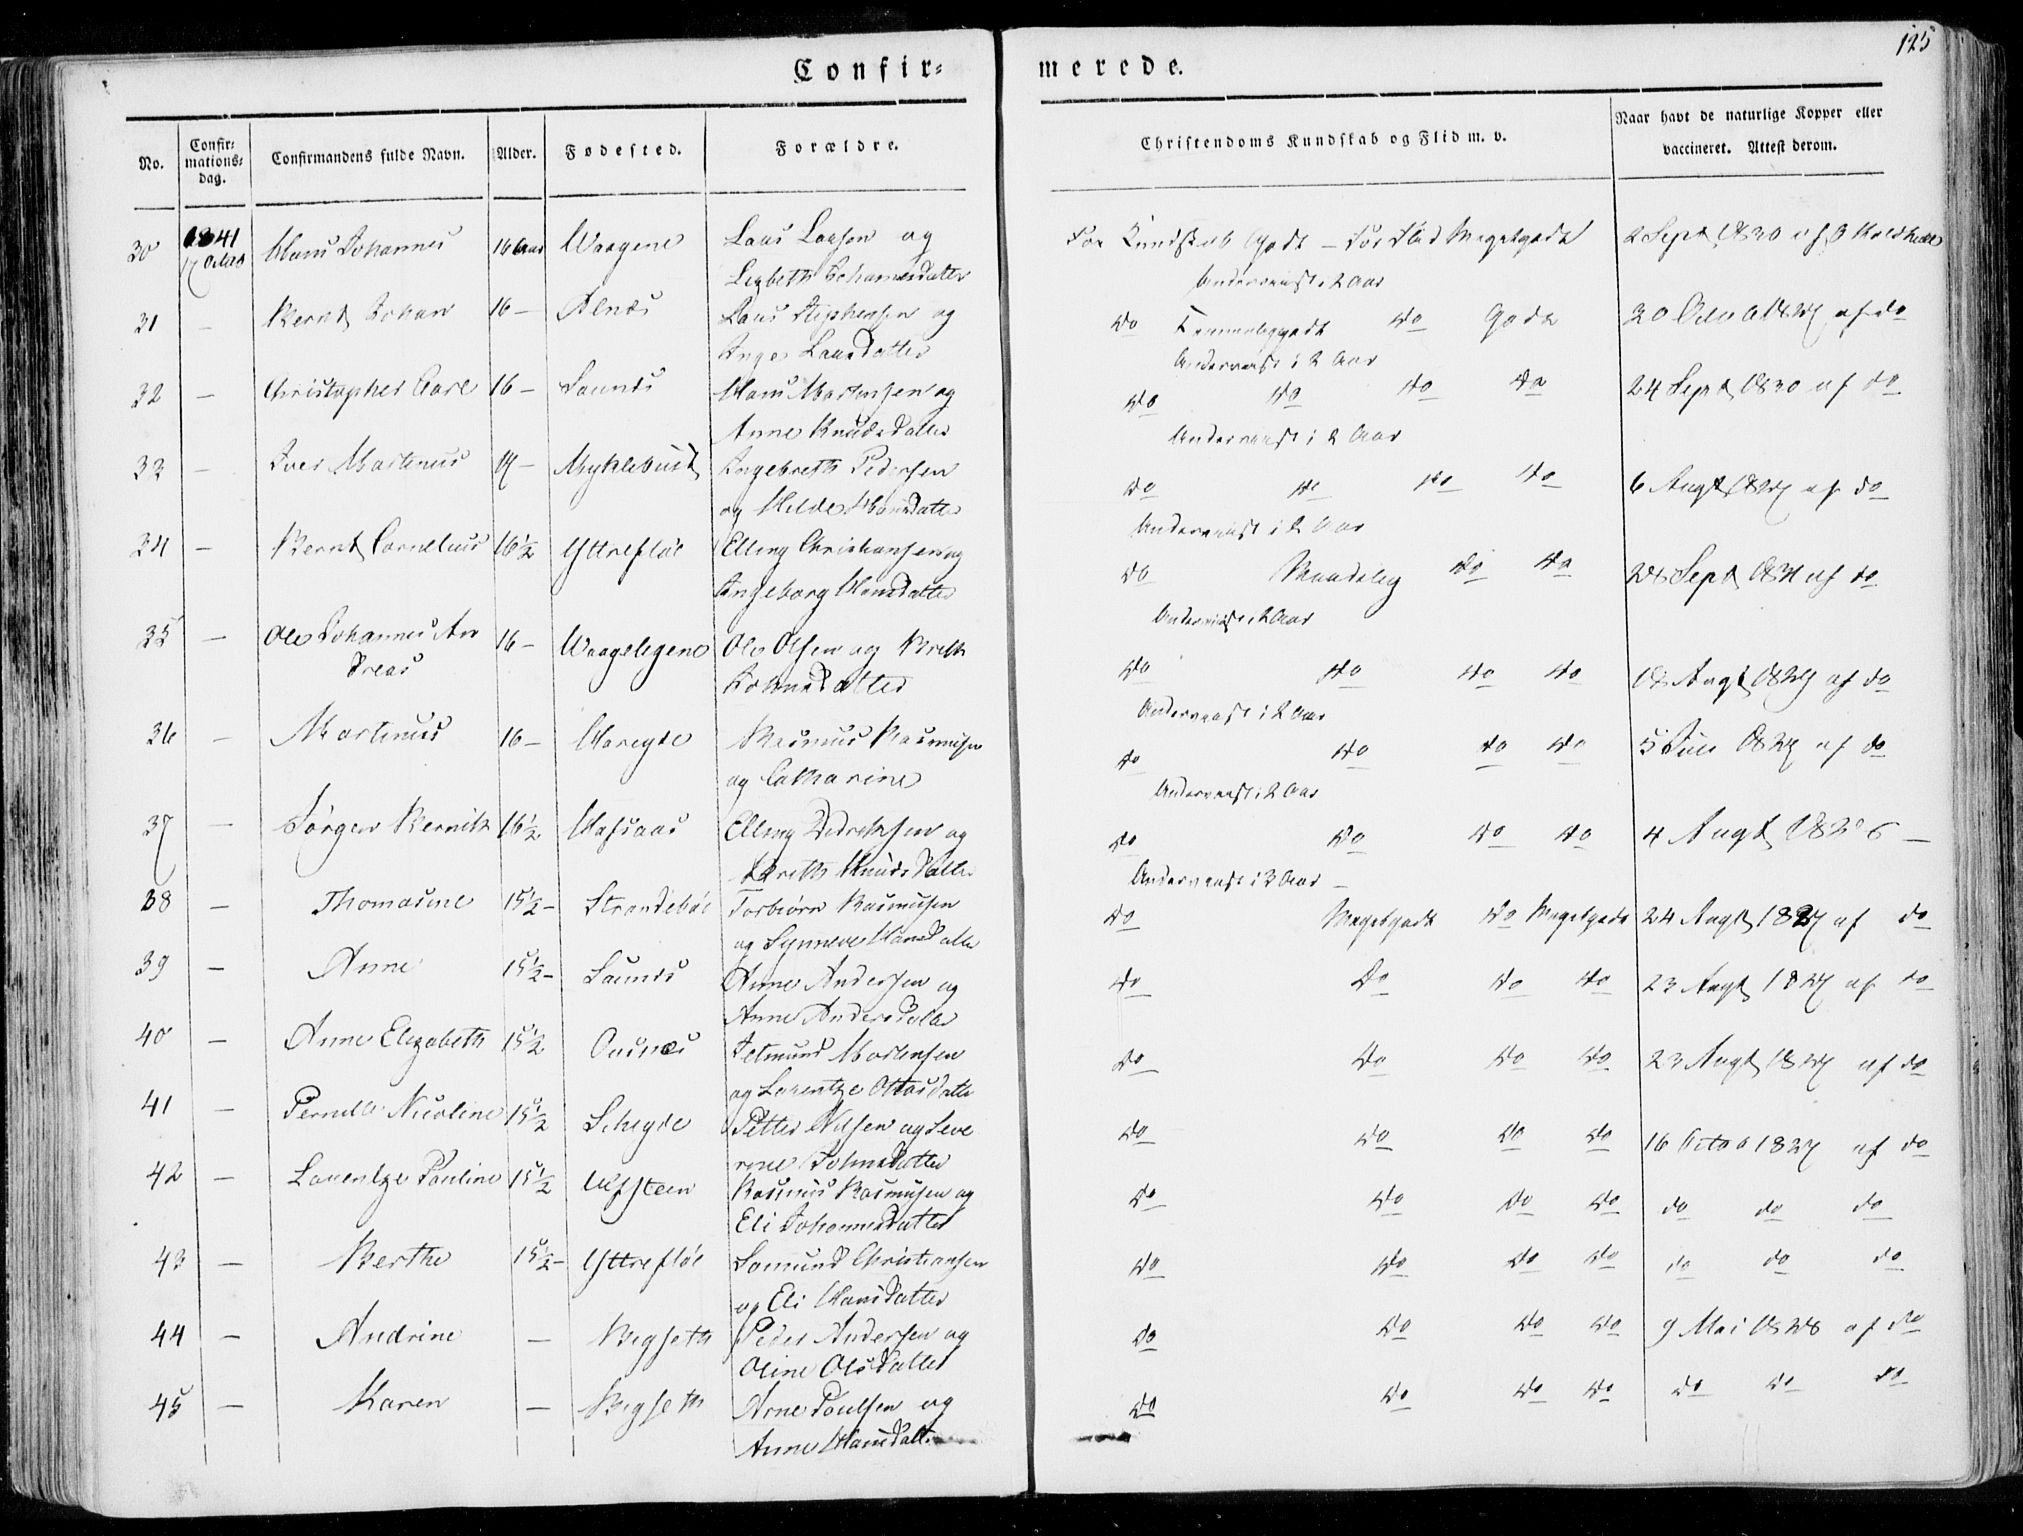 125
Confir= merede.
No. Confir=mations=dag. Confirmandens fulde Navn. Alder. Fødested. Forældre. Christendoms Kundskab og Flid m. v. Naar havt de naturlige Kopper eller vaccineret. Attest derom.
30 1841 Hans Johannes 16 Aar Waagene Laas Larsen og For Kundskab Godt – For Flid Megetgodt 2 Sept 1830 af
Lisbeth Johannesdatter Undervist i 2 Aar
31 – Bernt Johan 16 – Alnes Laus Stephensen og do do Godt 30 af do
Inger Laasdatter Undervist i 2 Aar
32 – Christopher Carl 16 – Saunes Hans Martinsen og do do do do 24 Sept 1830 af do
Anne Knudsdatter Undervist i 2 Aar
33 – Iver Martinus 17 – Myklebust Ingebreth Pedersen do do do do 6 Augt 1827 af do
og Hilde Hansdatter Undervist i 2 Aar
34 – Bernt Cornelius 16½ Yttrefløe Elling Christiansen og do Maadelig do do Sept af do
Ingeborg Hansdatter Undervist i 2 Aar
35 – Ole Johannes An 16 – Waagelegene Ole Olsen og Breth do do do do 18 Augt 1827 af do
dreas Johnsdatter Undervist i 2 Aar
36 – Martinus 16 – Hareyde Rasmus Rasmusen do do do do 5 Juli 1827 af do
og Catharine Undervist i 2 Aar
37 – Jørgen Bernth 16½ Hafsaas Elling Didriksen og do do do do 4 Augt 1826 –
Breth Knudsdatter Undervist i 3 Aar –
38 – Thomasine 15½ – Strandebøe Torbiørn Rasmusen do Megetgodt do Megetgodt 24 Augt 1827 af do
og Synneve Hansdatter
39 – Anne 15½ – Saunes Arne Andersen og do do do do 23 Augt 1827 af do
Anne Andersdatter
40 – Anne Elizabeth 15½ Ousnæs Jetmund Martensen do do do do 23 Augt 1827 af do
og Lorentze Ottosdatter
41 – Pernelle Nicoline 15½ Scheyde Petter Nilsen og Seve do do do do 16 October 1827 af do
rine Johnsdatter
42 – Laurentze Pauline 15½ Ulfsteen Rasmus Rasmusen og do do do do do do do
Eli Johannesdatter
43 – Berthe 15½ – Yttrefløe Samund Christiansen do do do do do do do
og Eli Hansdatter
44 – Andrine – Bigseth Peder Andersen og do do do do 9 Mai 1828 af do
Oline Olsdatter
45 – Karen – Bigseth Arne Poulsen og do do do do do do do
Anne Hansdatt.